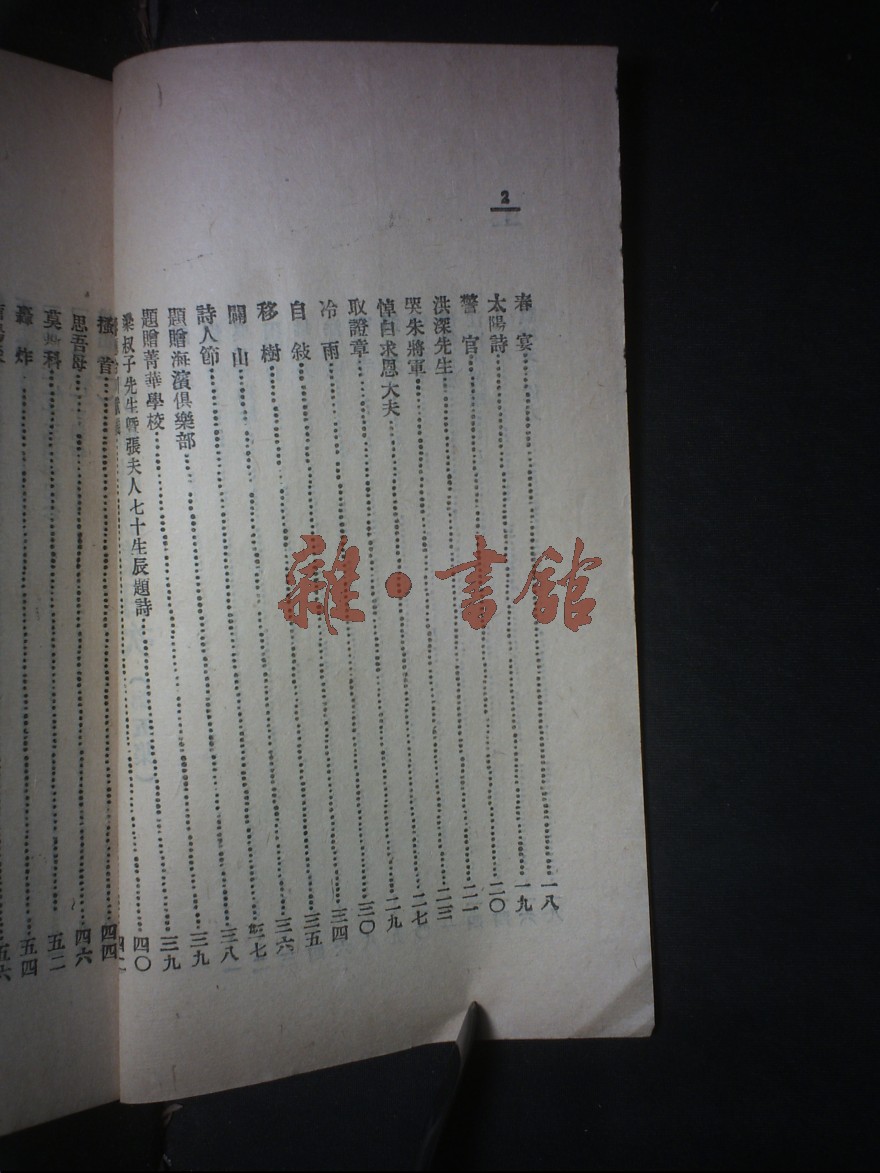 2
春宴……一八
太陽詩……一九
警官……二〇
洪深先生……二一
哭朱將軍……二三
悼白求恩大夫……二七
取證章……二九
冷雨……三〇
自敍……三四
移樹……三五
關山……三六
詩人節……三七
題贈海濱俱樂部……三八
題贈菁華學校……三九
梁叔子先生暨張夫人七十生辰題詩……三九
四〇
搔首……四四
思吾母……四六
莫斯科……五二
轟炸……五四
五六
雜·書館